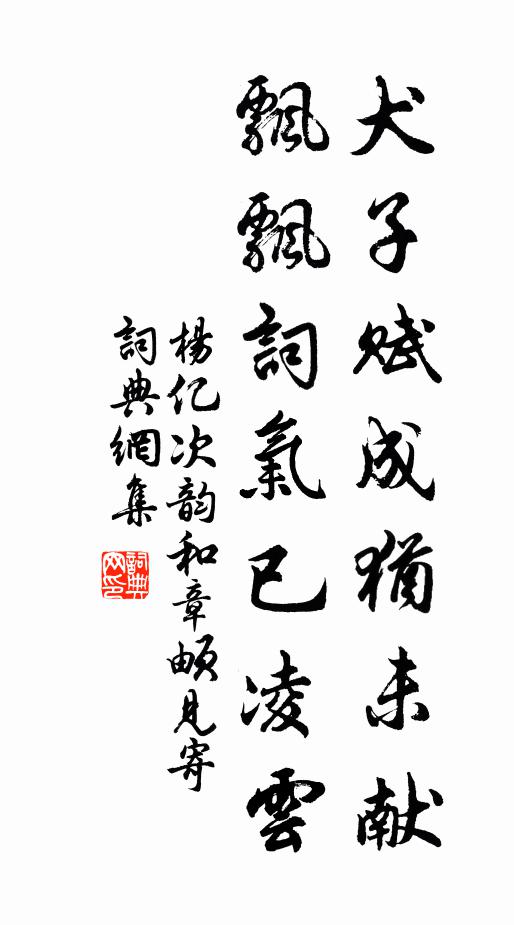 犬子赋成猶未献
飄飄詞氣已凌雲
楊亿次韵和章頔見寄
詞典網集
詞典
网印